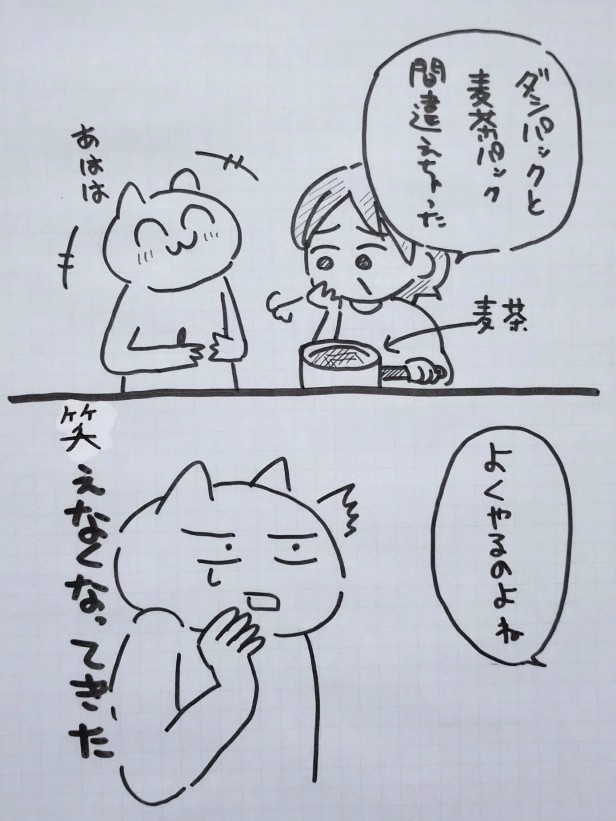 ダシパックと
麦茶パック
間違えちゃった
あはは
麦茶
よくやるのよね
笑えなくなってきた